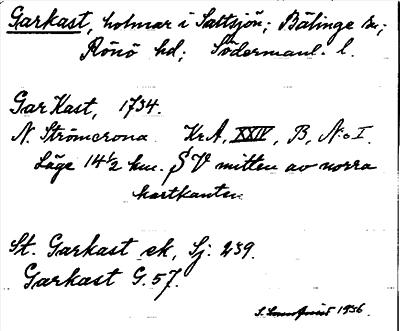 Garkast, holmar i Saltsjön; Bälinge sn;
Rönö hd; Södermanl. l.
Gar Kast, 1734.
N. Strömcrona KrA, XXIV, B, N:o I.
Läge 14½ km. SV mitten av norra
kartkanten
St. Garkast ek, Sj. 239.
Garkast G. 57.
1936.